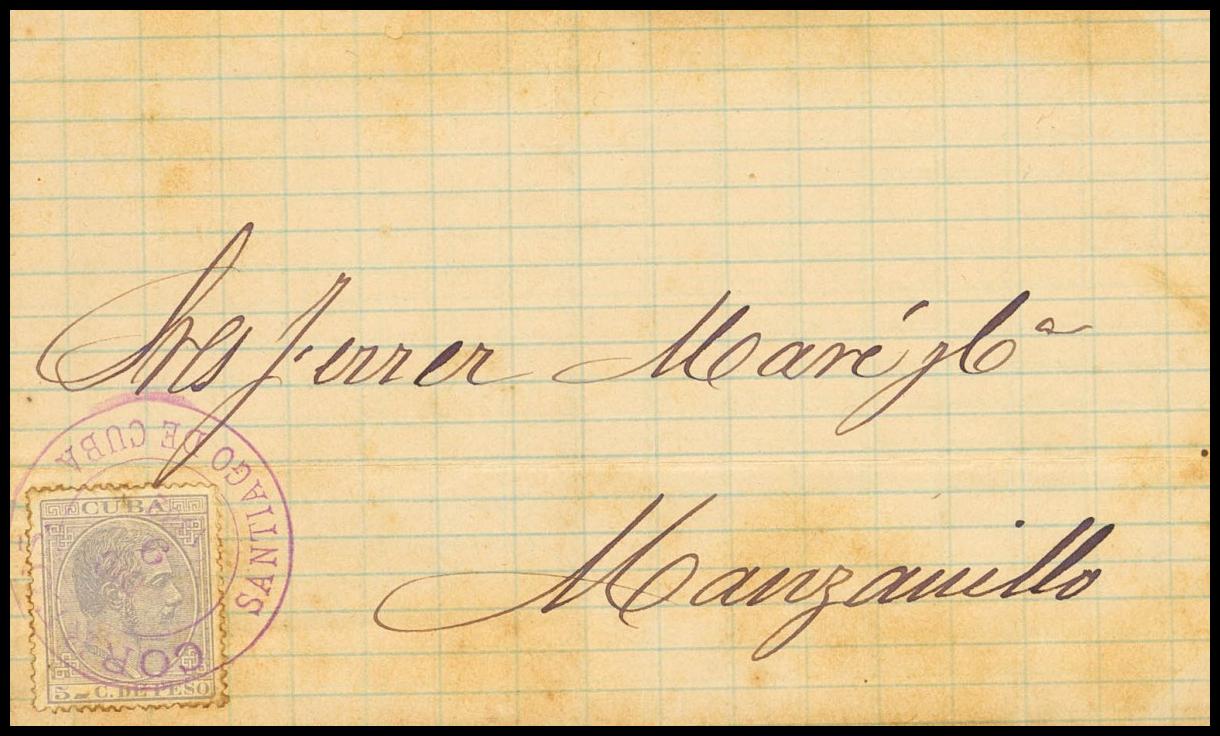 Sres Ferrer Maré y Cª
Manzanillo
SANTIAGO DE CUBA
COR
CUBA
5 C. DE PESO